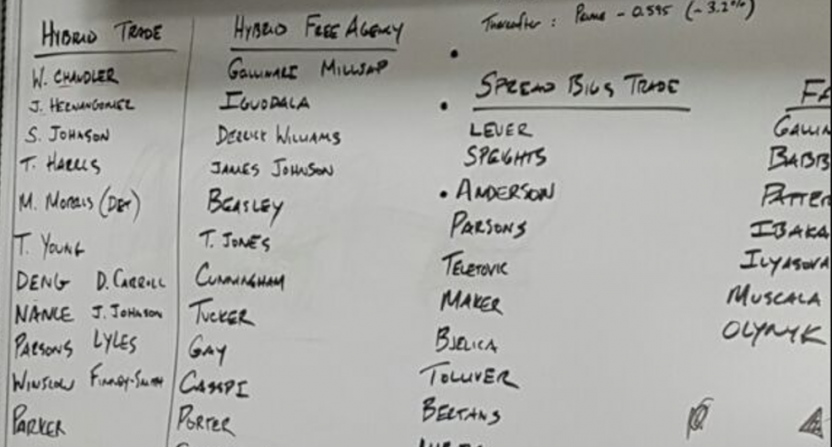 Thereafter : Prime - 0.595 (-3.2%)
HYBRID TRADE
W. CHANDLER
J. HERNANGOMEZ
S. JOHNSON
T. HARRIS
M. MORRIS (DET)
T. YOUNG
DENG D. CARROLL
NANCE J. JOHNSON
PARSONS LYLES
WINSLOW FINNEY-SMITH
PARKER
HYBRID FREE AGENCY
GALLINARI MILLSAP
IGUODALA
DERRICK WILLIAMS
JAMES JOHNSON
BEASLEY
T. JONES
CUNNINGHAM
TUCKER
GAY
CASSPI
PORTER
SPREAD BIGS TRADE
LEUER
SPEIGHTS
• ANDERSON
PARSONS
TELETOVIC
MAKER
BJELICA
TOLLIVER
BERTANS
FA
GALLIN
BABB
PATTER
IBAKA
ILYASOVA
MUSCALA
OLYNYK